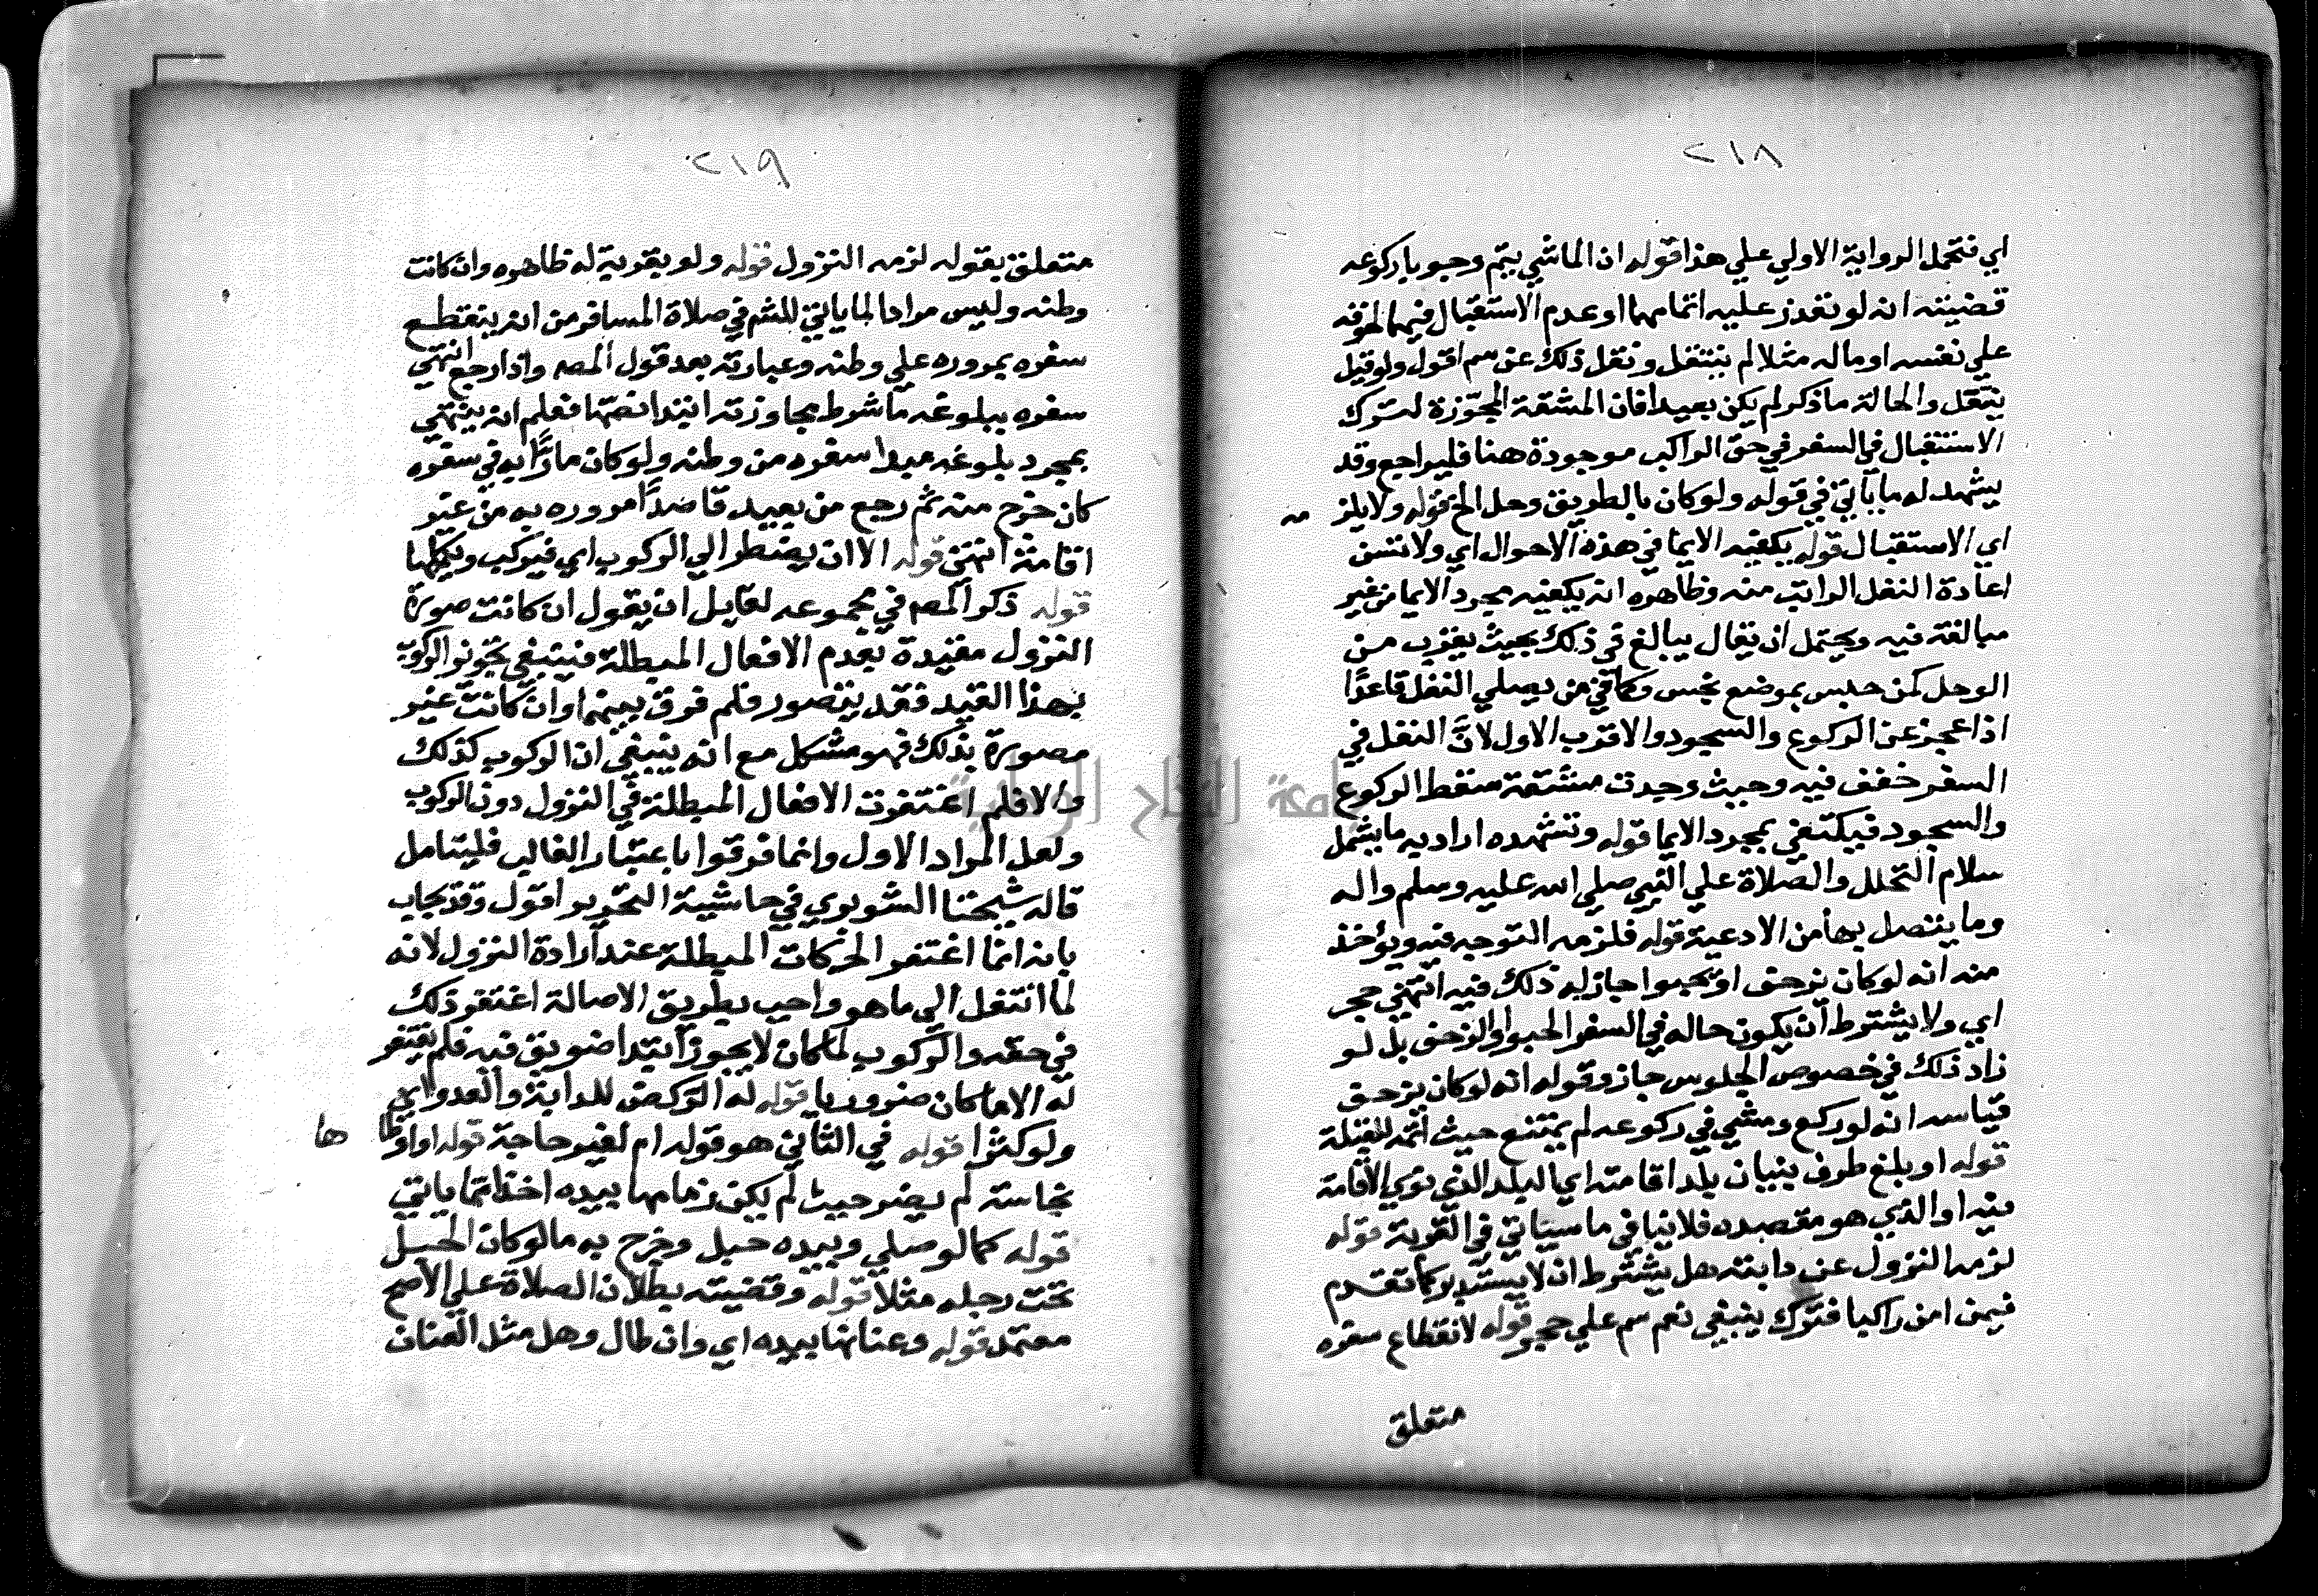 ٢١٨
اي فتحمل الرواية الاولي علي هذا قوله ان الماشي يتم وجوبا ركوعه
قضيته انه لو تعذر عليه اتمامهما او عدم الاستقبال فيهما لخوفه
علي نفسه او ماله مثلا لم يتنفل ونقل ذلك عن سم اقول ولو قيل
يتنفل والحالة ما ذكر لم يكن بعيدا فان المشقة المجوزة لترك
الاستقبال في السفر في حق الراكب موجودة هنا فليراجع وقد
يشهد له ما يأتي في قوله ولو كان بالطريق وحل الخ قوله ولا يلزمه
اي الاستقبال قوله يكفيه الايما في هذه الاحوال اي ولا تسن
اعادة النفل الراتب منه وظاهره انه يكفيه مجرد الايما من غير
مبالغة فيه ويحتمل ان يقال يبالغ في ذلك بحيث يقرب من
الوحل كمن حبس بموضع نجس وكما في من يصلي النفل قاعدًا
اذا عجز عن الركوع والسجود والاقرب الاول لانَّ النفل في
السفر خفف فيه وحيث وجدت مشقة سقط الركوع
والسجود فيكتفي بمجرد الايما قوله وتشهده اراد به ما يشمل
سلام التحلل والصلاة علي النبي صلي الله عليه وسلم واله
وما يتصل بها من الادعية قوله فلزمه التوجه فيه ويؤخذ
منه انه لو كان يزحف او يحبوا جاز له ذلك فيه انتهي حجر
اي ولا يشترط ان يكون حاله في السفر الحبو او الزحف بل لو
زاد ذلك في خصوص الجلوس جاز وقوله انه لو كان يزحف
قياسه انه لو ركع ومشي في ركوعه لم يمتنع حيث اتمه للقبلة
قوله او بلغ طرف بنيان بلد اقامته اي البلد الذي نوي الاقامة
فيه او الذي هو مقصده فلا ينافي ما سيأتي في القرية قوله
لزمه النزول عن دابته هل يشترط ان لا يستدبر كما تقدم
فيمن امن راكبا فترك ينبغي نعم سم علي حجر قوله لانقطاع سفره
متعلق
٢١٩
متعلق بقوله لزمه النزول قوله ولو بقرية له ظاهره وان كانت
وطنه وليس مرادا لما ياتي للشم في صلاة المسافر من انه ينقطع
سفره بمروره علي وطنه وعبارته بعد قول المصـ واذا رجع انتهي
سفره ببلوغه ما شرط مجاوزته ابتدا نصها فعلم انه ينتهي
بمجرد بلوغه مبدا سفره من وطنه ولو كان مارًّا به في سفره
كان خرج منه ثم رجع من بعيد قاصدًا مروره به من غير
اقامة انتهي قوله الا ان يضطر الي الركوب اي فيركب ويكملها
قوله ذكر المصـ في مجموعه لقايل ان يقول ان كانت صورة
النزول مقيدة بعدم الافعال المبطلة فينبغي تجويز الركوب
بهذا القيد فقد يتصور فلم فرق بينهما وان كانت غير
مصورة بذلك فهو مشكل مع انه ينبغي ان الركوب كذلك
والا فلم اغتفرت الافعال المبطلة في النزول دون الركوب
ولعل المراد الاول وانما فرقوا باعتبار الغالب فليتامل
قاله شيخنا الشوبري في حاشية التحرير اقول وقد يجاب
بانه انما اغتفر الحركات المبطلة عند ارادة النزول لانه
لما انتقل الي ما هو واجب بطريق الاصالة اغتفر ذلك
في حقه والركوب لما كان لا يجوز ابتدا ضويق فيه فلم يغتفر
له الا ما كان ضروريا قوله له الركض للدابة والعدو اي
ولو كثرا قوله في الثاني هو قوله ام لغير حاجة قوله او اوطاها
نجاسة لم يضر حيث لم يكن زمامها بيده اخذا مما ياتي
قوله كما لو صلي وبيده حبل وخرج به ما لو كان الحبل
تحت رجله مثلا قوله وقضيته بطلان الصلاة علي الاصح
معتمد قوله وعنانها بيده اي وان طال وهل مثل العنان